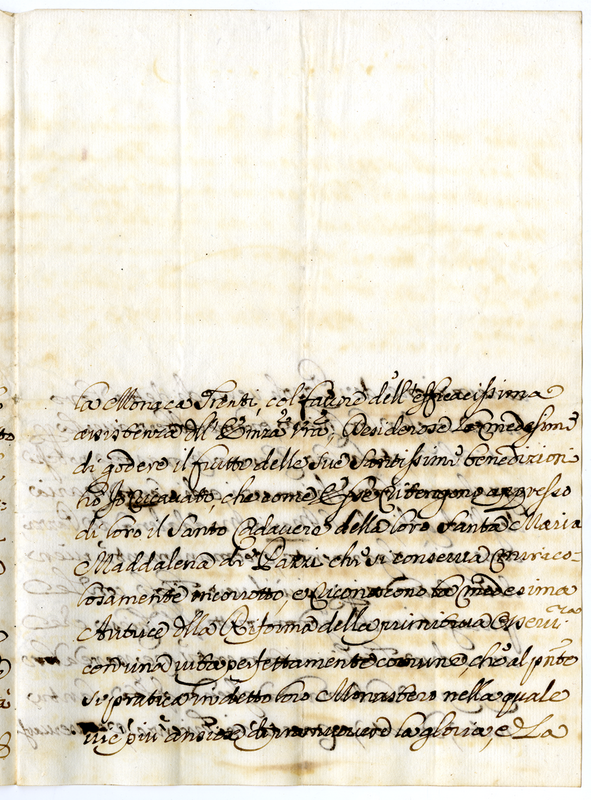 la Monaca Trenti, col favore dell'efficacissima
assistenza dll' Emza Vra; Desiderose le medesime
di godere il frutto delle sue Santissime benedizioni
hò Io ricavato, che come esse ritengono appresso
di loro il Santo Cadavere della loro Santa Maria
Maddalena de Pazzi che si conserva miraco-
losamente incorrotto, e riconoscono la medesima
Autrice dlla Riforma della primitiva
con una vita perfettamente comune, che al pnte
si pratica in detto loro Monastero nella quale
vie più ansiose di promovere la gloria, e La